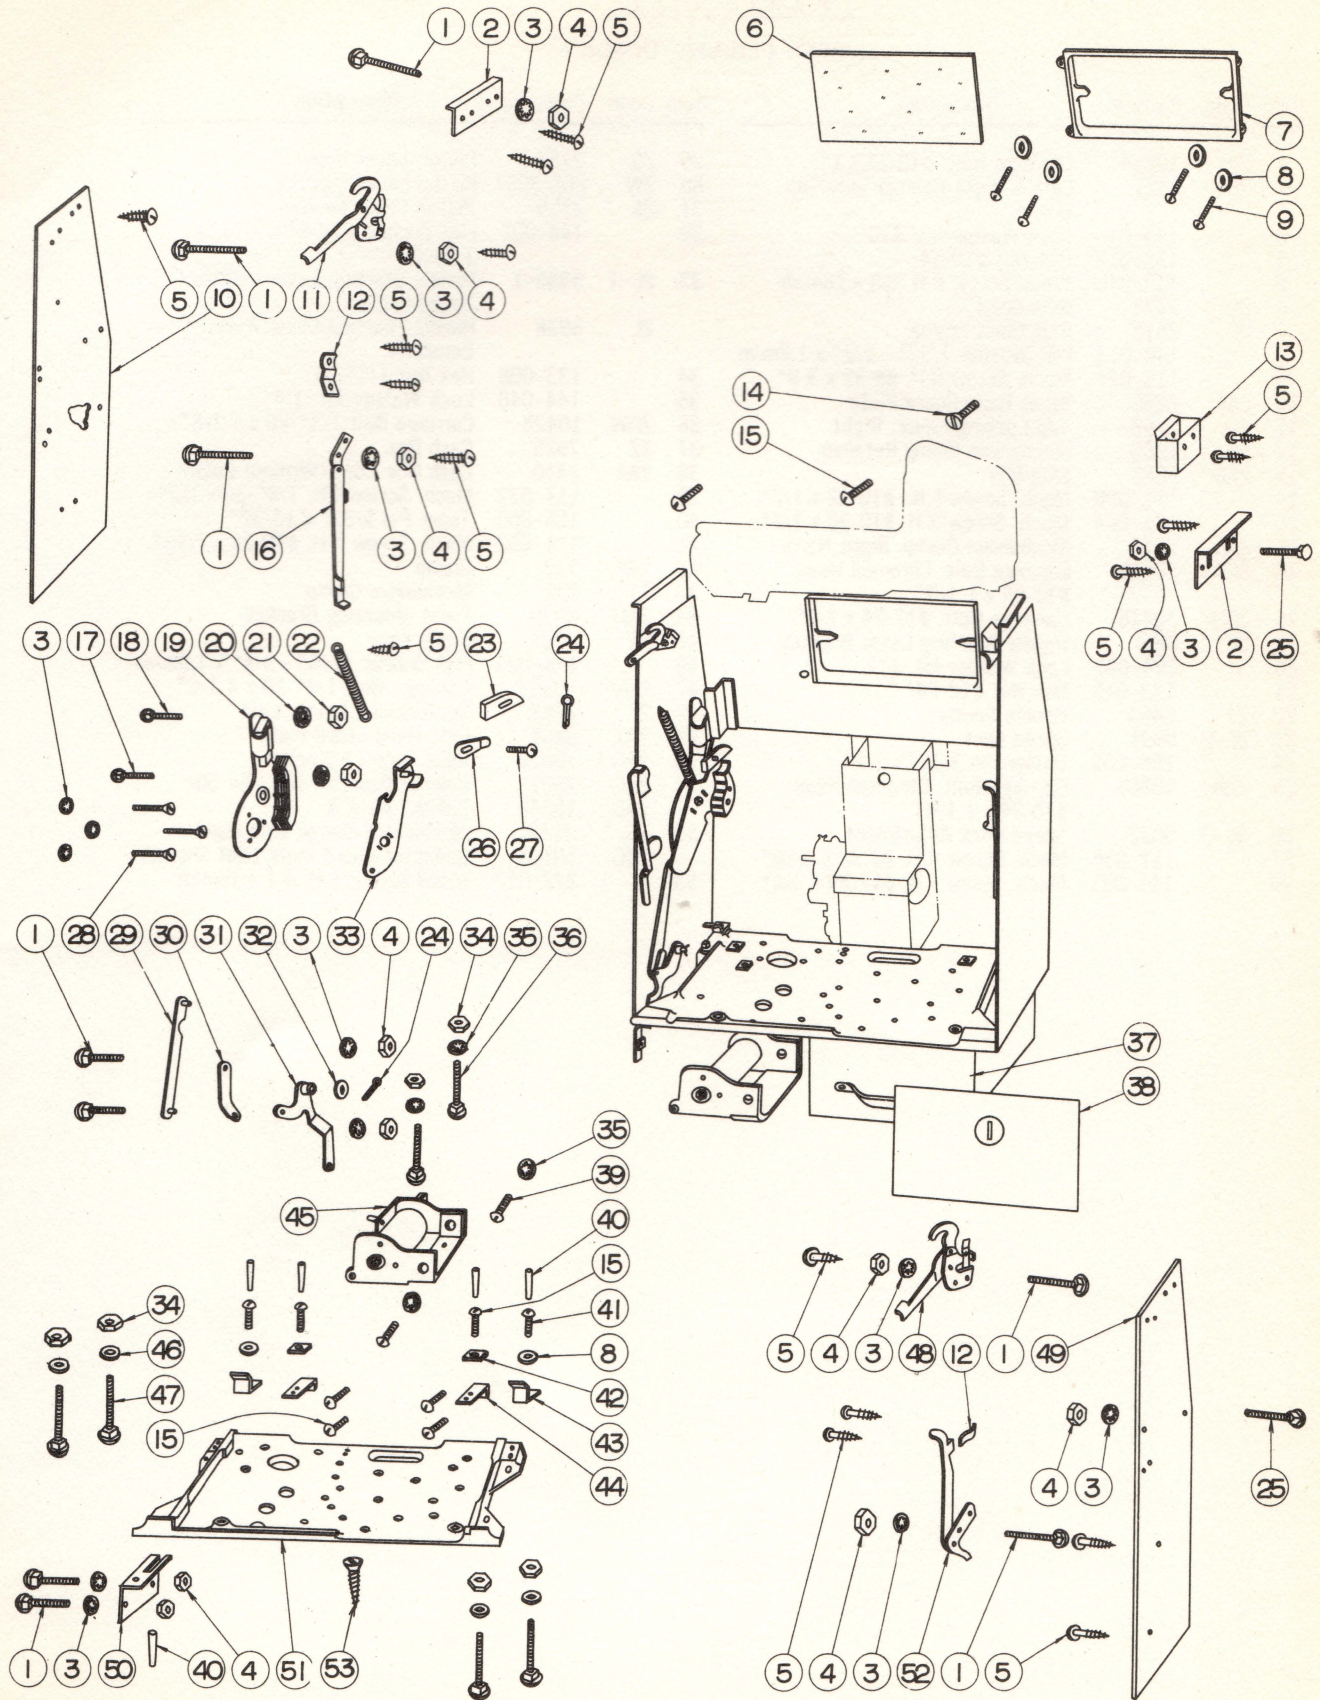 1 2 3 4 5 6
7
8
9
5 10 1 11 12 5 3 4
13
5
14
15
1 16 3 4 5
5 4 3 2 25
3 17 18 19 20 21 22 5 23 24
26 27
1 28 29 30 31 32 3 33 4 24 34 35 36
37
38
35
39
45 40
15
34 41
46 8
47 42
15 43
44
5 4 3 48 12 1 49
4 3 25
1 3 50 40 4 51 53
5 4 3 52 1 5